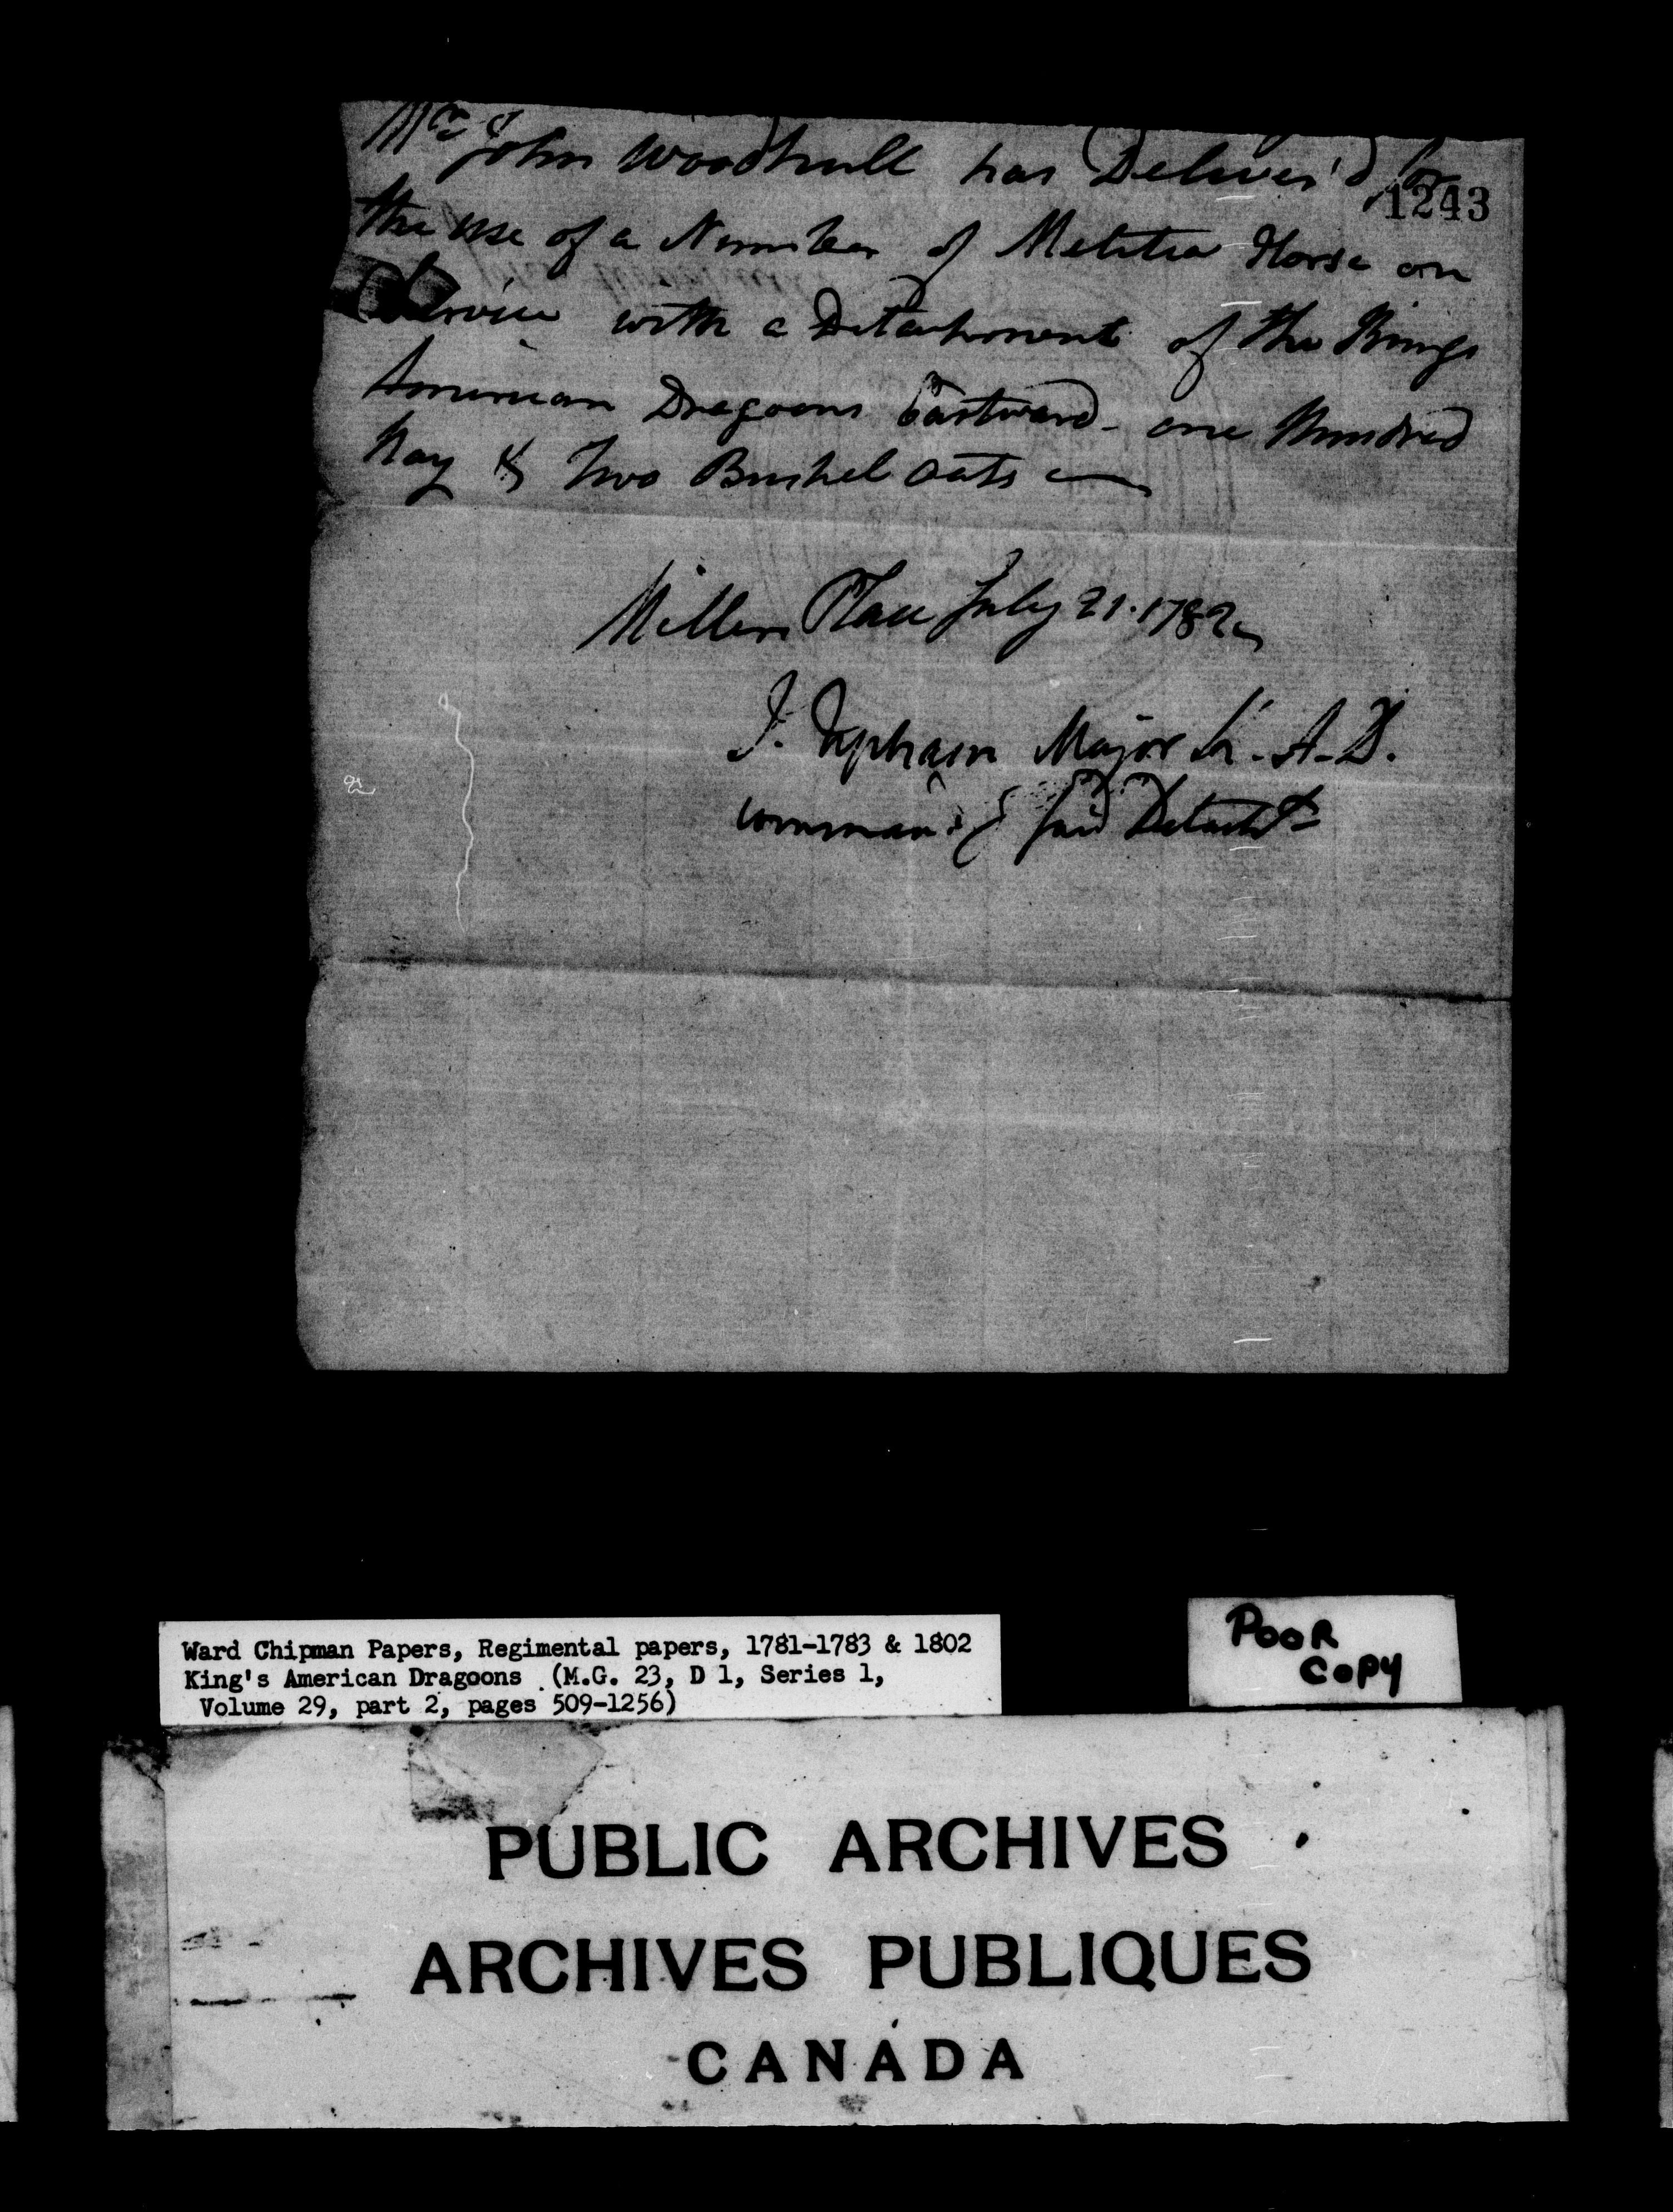 Mr John Woodhull has Deliver'd for
1243
the use of a Number of Melitia Horse on
Service with a Detachment of the Kings
American Dragoons Eastward - one Hundred
Hay & Two Bushel Oats
Millers Place July 21. 1782
J. Upham Major K. A. D.
command.g said Detacht
Ward Chipman Papers, Regimental papers, 1781-1783 & 1802
King's American Dragoons (M.G. 23, D 1, Series 1,
Volume 29, part 2, pages 509-1256)
POOR
COPY
PUBLIC ARCHIVES
ARCHIVES PUBLIQUES
CANADA